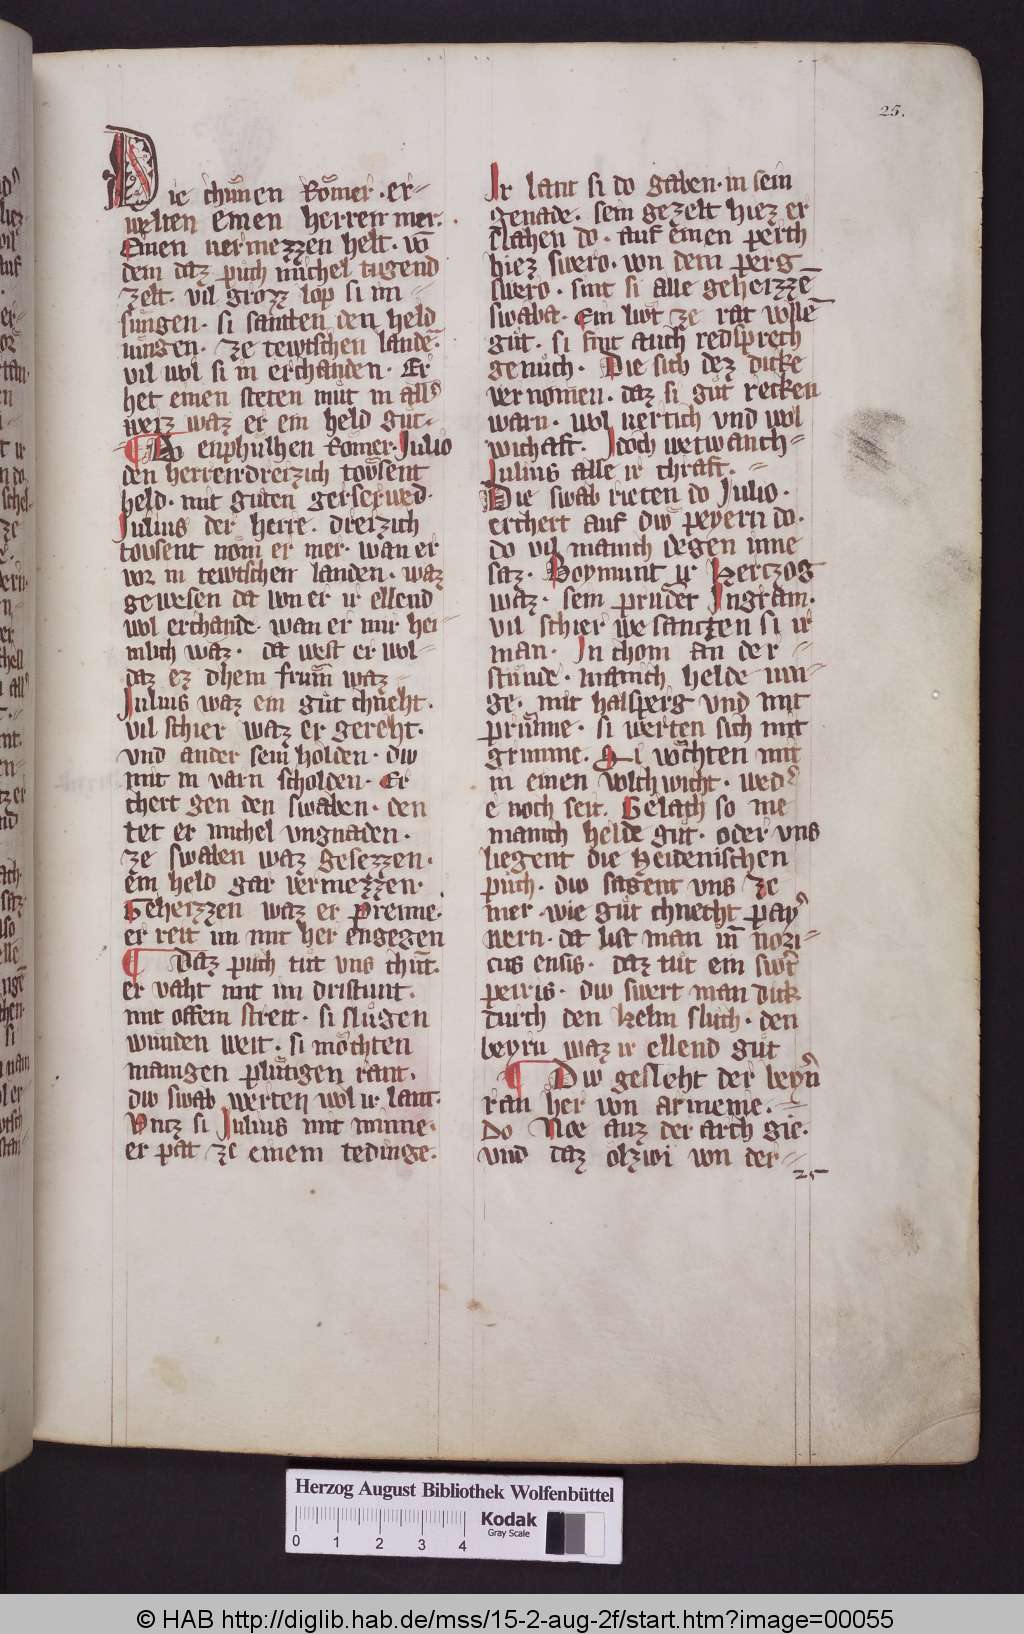 25.
Die chůnen Rômer · er-
welten einen herren mer.
Einen vermezzen helt · vō
dem daz půch michel tugend
zelt · vil grozz lop si im
sungen · si santen den held
iungen · ze tewtschen landē.
vil wol si in erchanden · Er
het einen steten můt in allˢ
weiz waz er ein held gůt·
Do enphulhen Rômer · Julio
den herren dreizich tousent
held · mit guten gerserwed ·
Julius der herre · dreizich
tousent nom er mer · wan er
vor in tewtschen landen · waz
gewesen da von er ir ellend
wol erchande · wan er mir hei-
mlich waz · da west er wol-
daz ez dhein frum waz
Julius waz ein gůt chneht ·
vil schier waz er gereht ·
vnd ander sein holden · diw
mit in varn scholden · Er
chert gen den swaben · den
tet er michel vngnaden ·
ze swaben waz gesezzen ·
ein held gar vermezzen ·
Geheizzen waz er Prenne ·
er reit im mit her engegen
Daz půch tůt vns chůnt ·
er vaht mit im dristunt ·
mit offem streit · si slůgen
wunden weit · si môchten
manigen plůtigen rant ·
diw swab werten wol ir lant ·
Vntz si Julius mit minne ·
er pat ze einem tedinge ·
Ir lant si do gaben · in sein
genade · sein gezelt hiez er
slahen do · auf einen perch
hiez swero · von dem perg
swero · sint si alle geheizzē
swaba · Ein liwt ze rat vollē
gůt · si sint auch redsprech
genůch · Die sich dez dicke
vernomen · daz si gůt recken
warn · wol vertich vnd wol
wichaft · Idoch wetwanch-
Julius alle ir chraft ·
Die swab rieten do Julio ·
er chert auf diw peyern do ·
do vil manich degen inne
saz · Boymunt ir Hertzog
waz · sein průder Ingram ·
vil schier we santzen si ir
man · In chom an der
stunde · manich helde iun-
ge · mit halsperg vnd mit
prunne · si werten sich mit
grimme · Si vâchten mit
in einen volchwicht · wedˢ
e noch seit · Gelach so me
manich helde gůt · oder vns
liegent die Heidenischen
půch · diw sagent vns ze
mer · wie gůt chnecht payˢ
wern · da list man in nozi-
cus ensis · daz tůt ein swˢt
peiris · diw swert man dick
durch den helm slůch · den
beyrn waz ir ellend gůt
Diw gesleht der beyrn
ran her von armenie ·
Do Noe auz der arch gie ·
vnd daz olzwi von der
25
Herzog August Bibliothek Wolfenbüttel
0 1 2 3 4
Kodak
Gray Scale
© HAB http://diglib.hab.de/mss/15-2-aug-2f/start.htm?image=00055